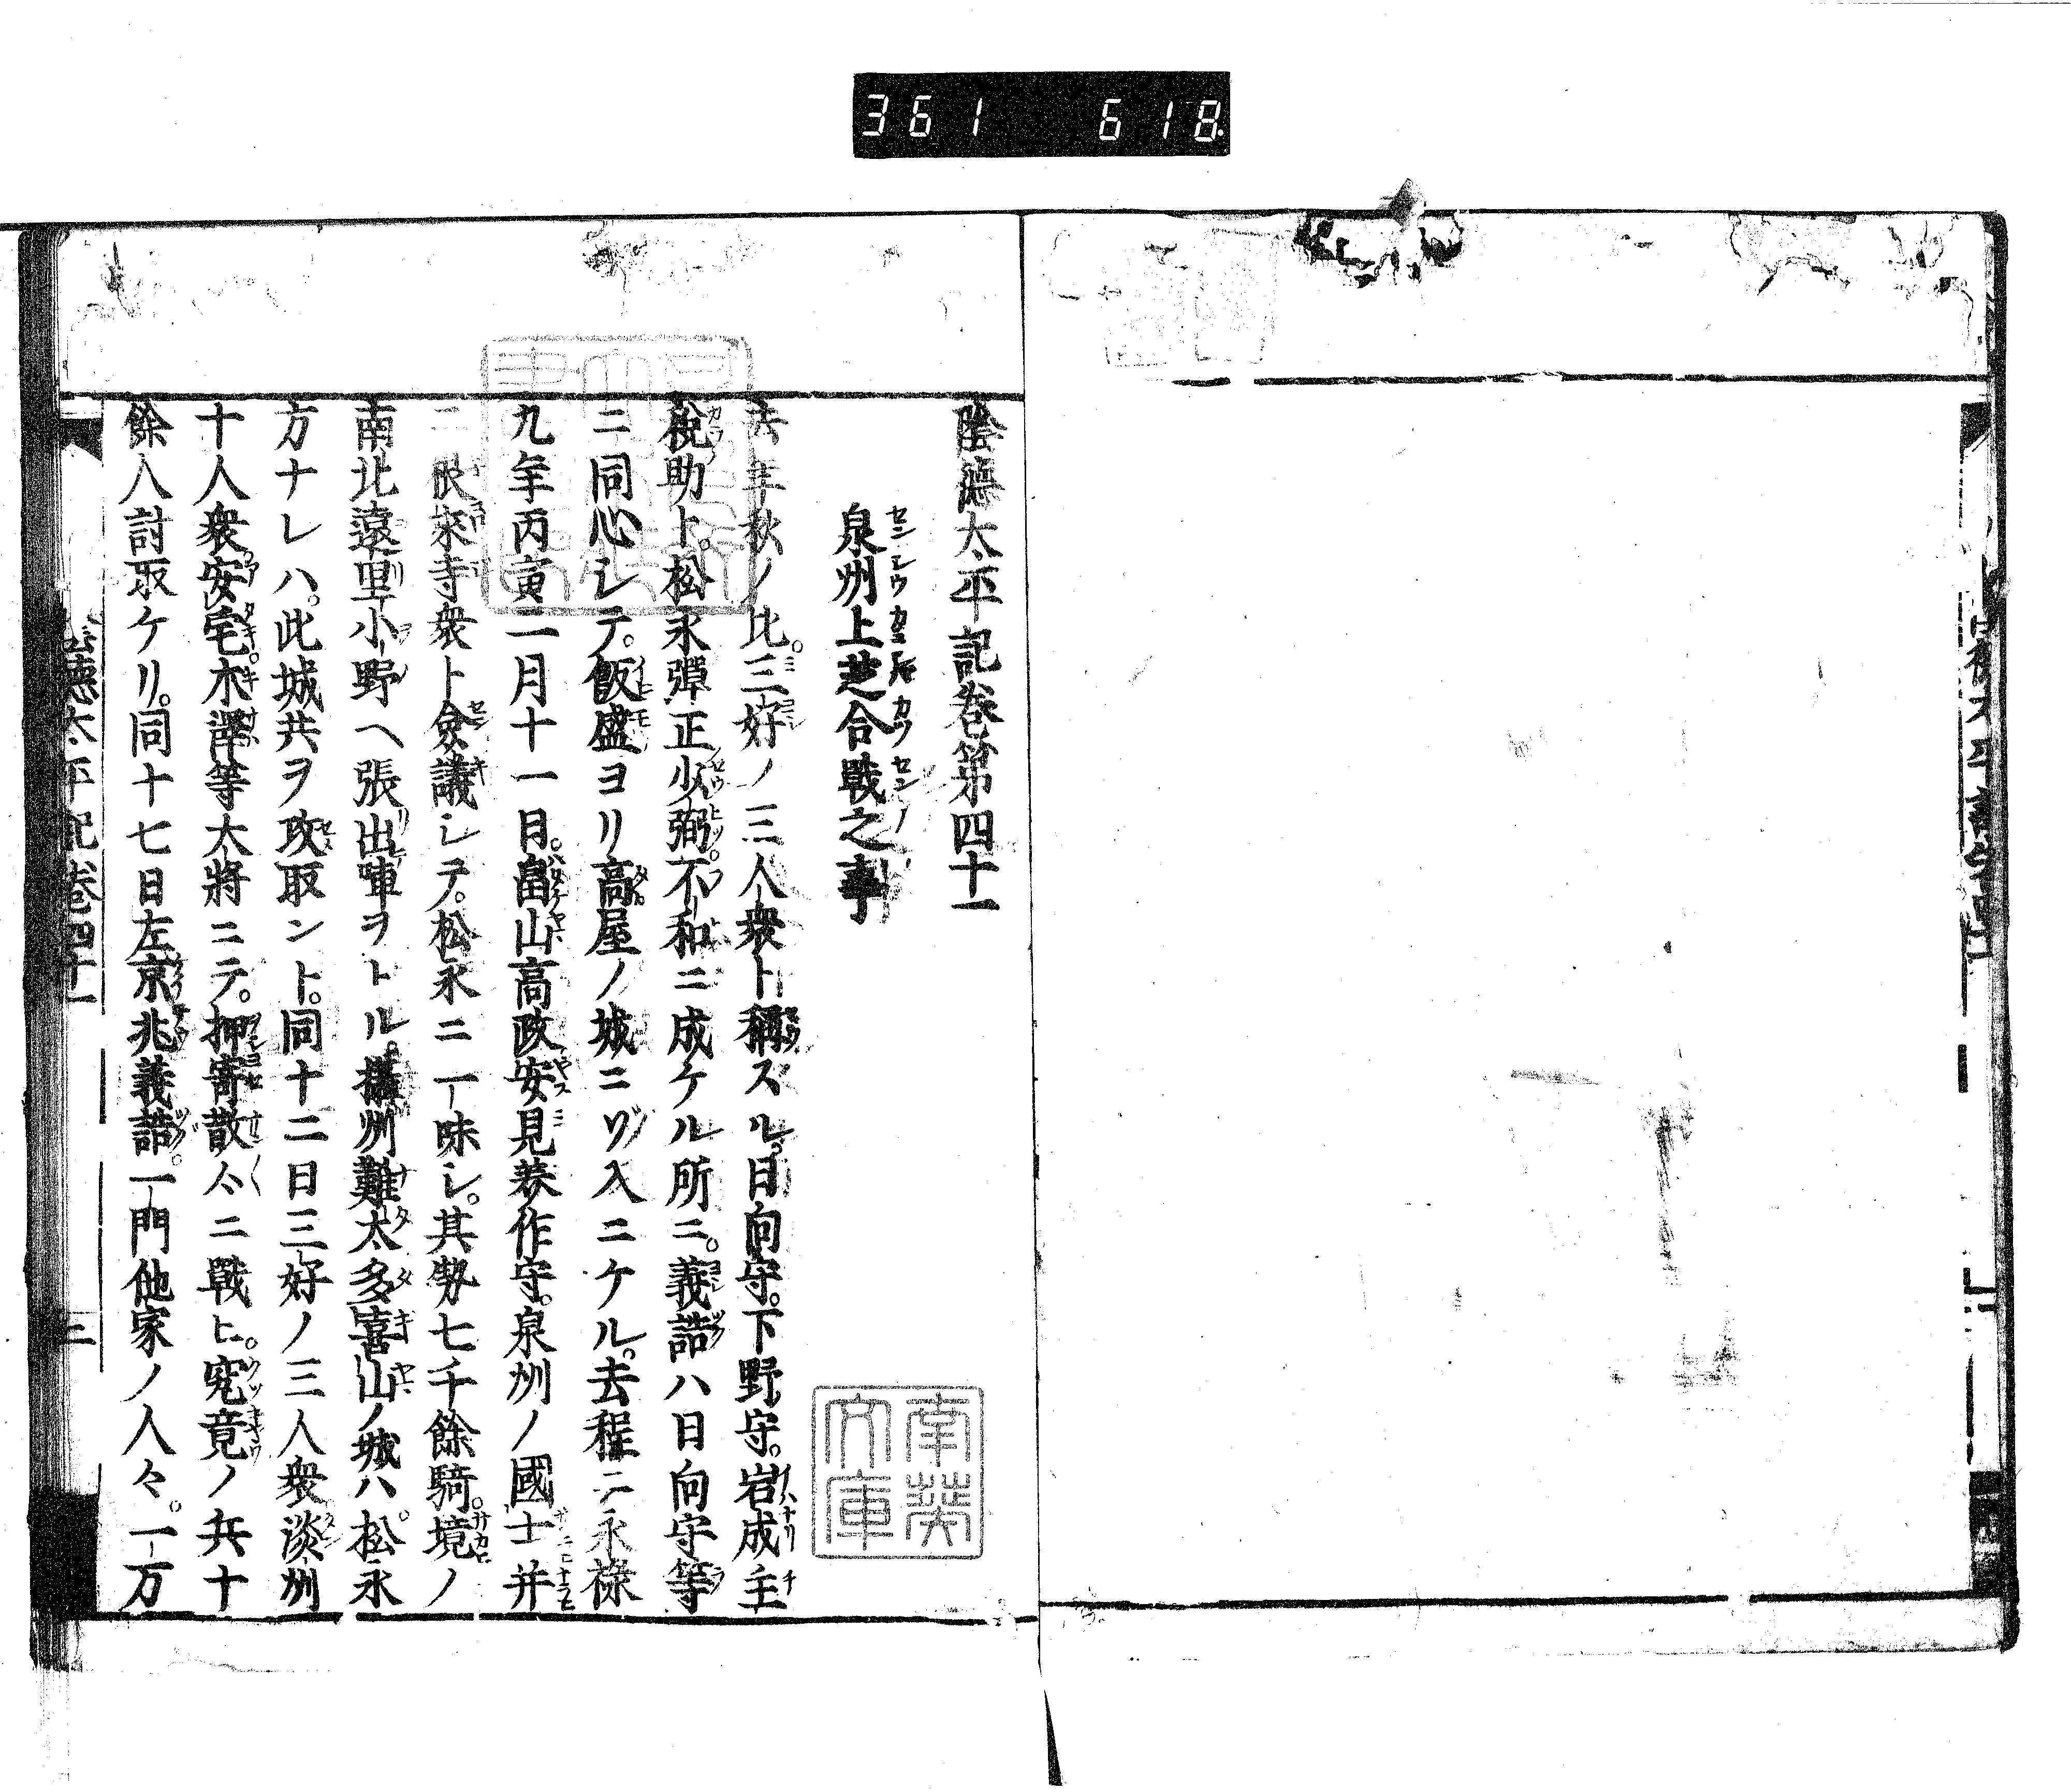 361 618
陰德太平記卷第四十一
泉州上芝合戰之事
去年秋ノ比。三好ノ三人衆ト稱スル。日向守。下野守。岩成主
稅助ト。松永彈正少弼不和ニ成ケル所ニ。義詰ハ日向守等
ニ同心シテ。飯盛ヨリ高屋ノ城ニソ入ニケル。去程ニ永祿
九年丙寅二月十一日。畠山高政安見美作守。泉州ノ國士并
ニ根來寺衆ト僉議シテ。松永ニ一味シ。其勢七千餘騎。境ノ
南北遠里小野ヘ張出陣ヲトル。攝州難太多喜山ノ城ハ。松永
方ナレハ。此城共ヲ攻取ント。同十二日三好ノ三人衆淡州
十人衆。安宅。木澤等大將ニテ。押寄散々ニ戰ヒ。究竟ノ兵十
餘人討取ケリ。同十七日左京兆義詰。一門他家ノ人々。一万
陰德太平記卷四十一
二
南葵
文庫